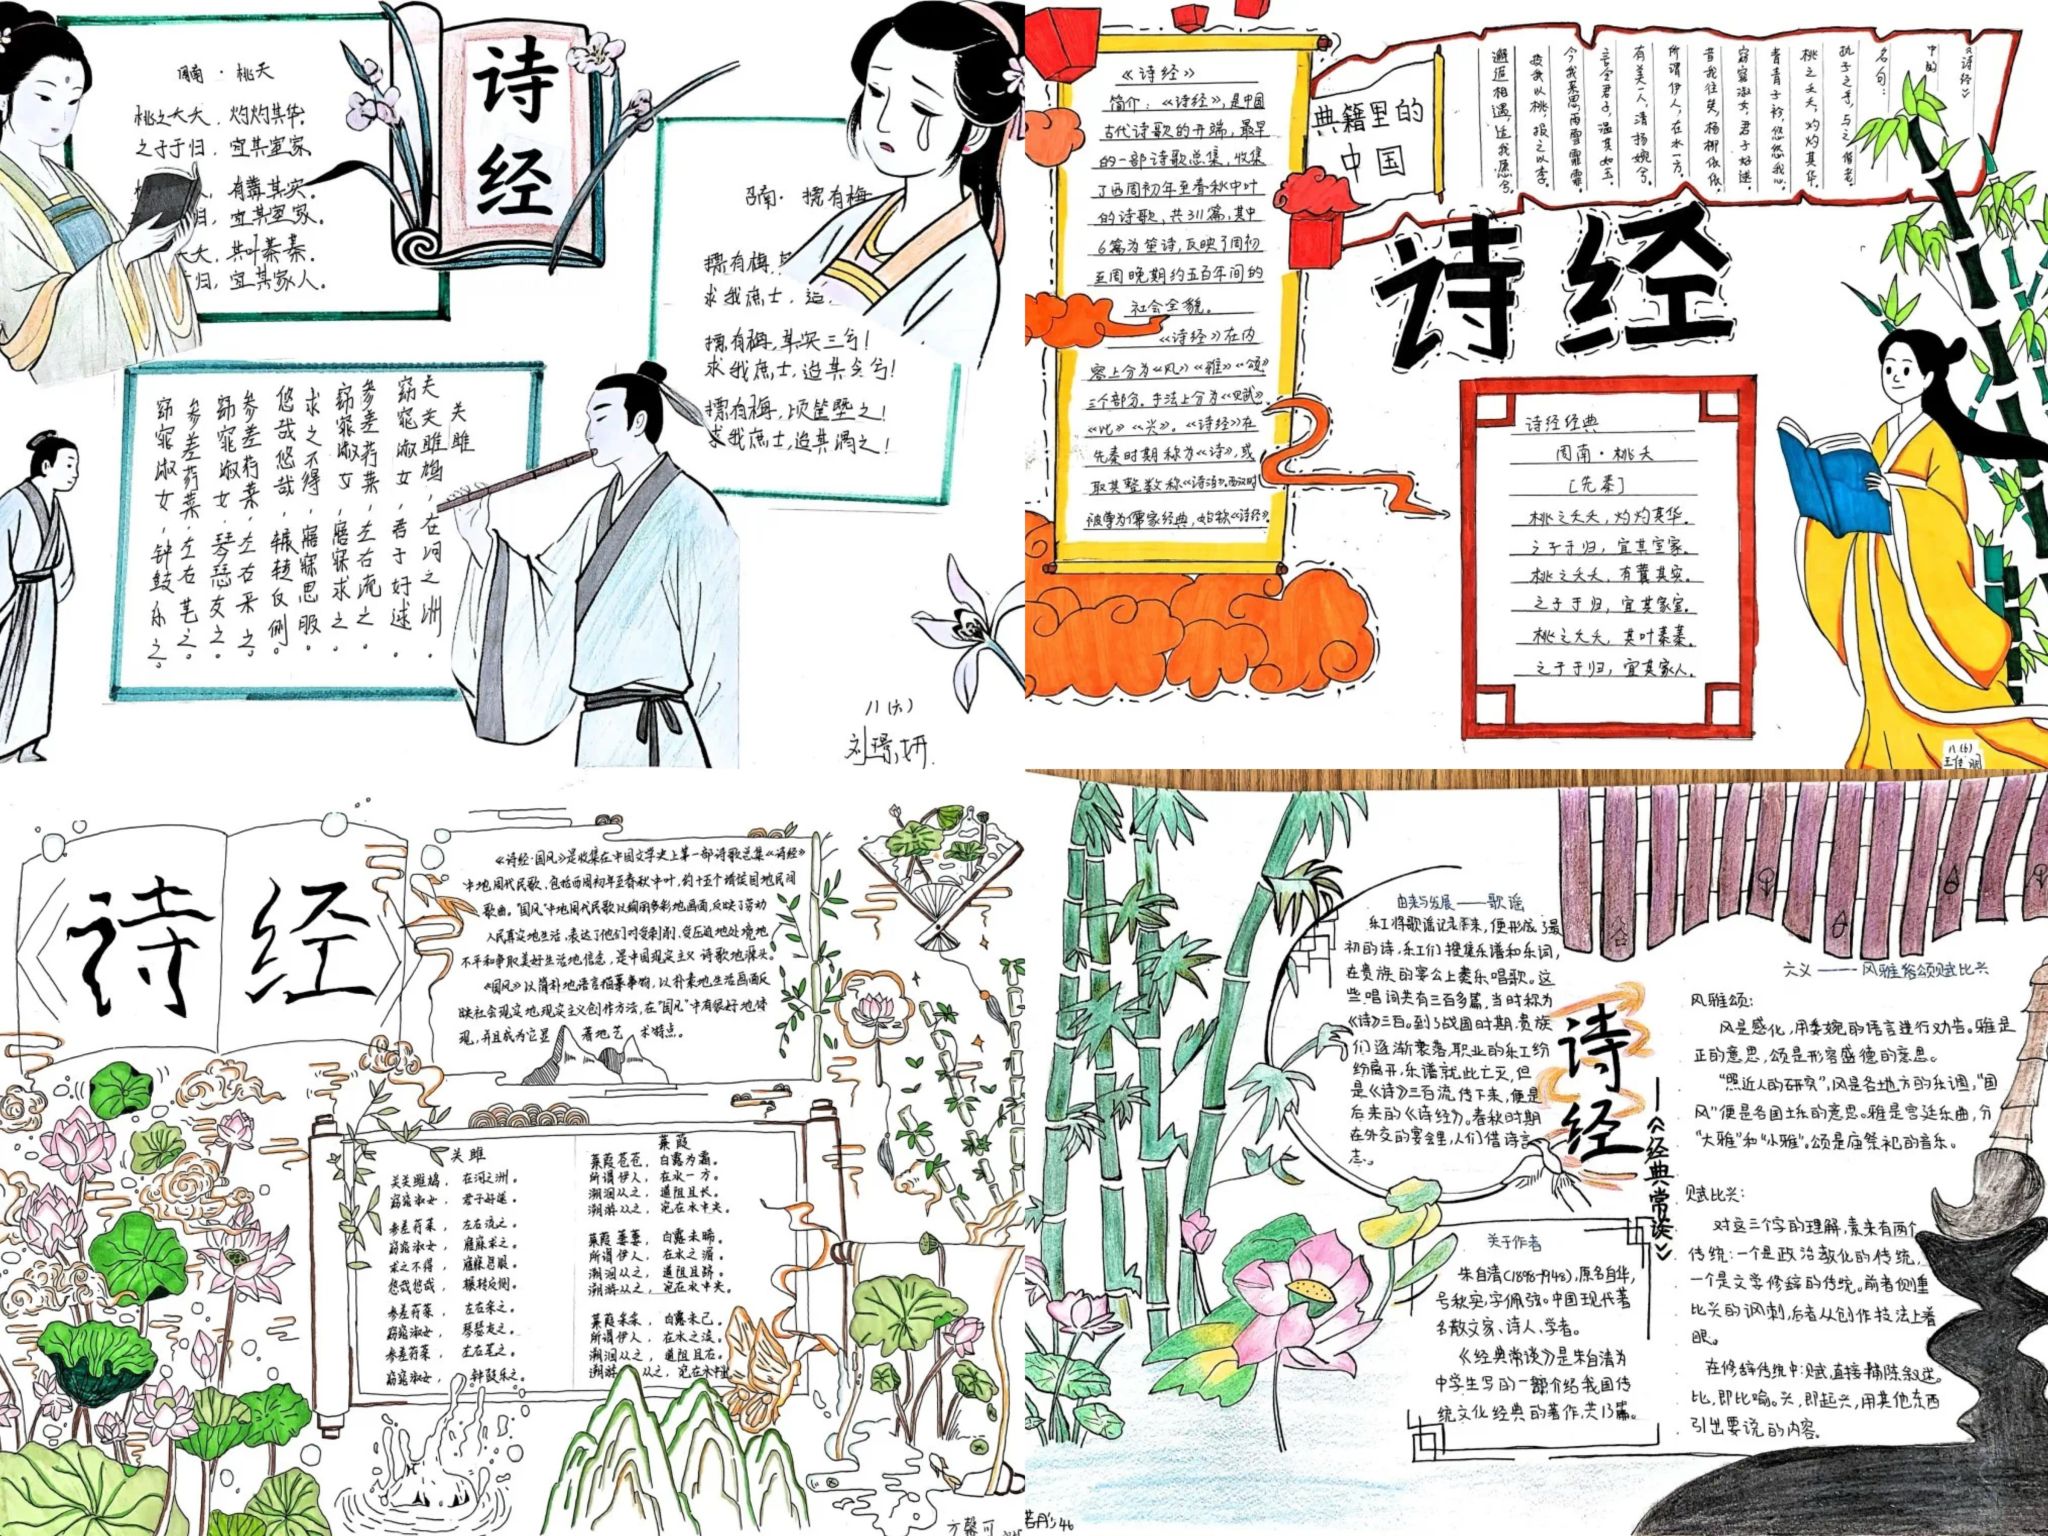 周南·桃夭
桃之夭夭，灼灼其华。
之子于归，宜其室家。
有蕡其实。
归，宜其家室。
夭，其叶蓁蓁。
于归，宜其家人。
诗经
召南·摽有梅
摽有梅，其
求我庶士，迨
摽有梅，其实三兮！
求我庶士，迨其今兮！
摽有梅，顷筐塈之！
求我庶士，迨其谓之！
关雎
关关雎鸠，在河之洲。
窈窕淑女，君子好逑。
参差荇菜，左右流之。
窈窕淑女，寤寐求之。
求之不得，寤寐思服。
悠哉悠哉，辗转反侧。
参差荇菜，左右采之。
窈窕淑女，琴瑟友之。
参差荇菜，左右芼之。
窈窕淑女，钟鼓乐之。
八(六)
刘璟妍
《诗经》
简介：《诗经》，是中国
古代诗歌的开端，最早
的一部诗歌总集，收集
了西周初年至春秋中叶
的诗歌，共311篇，其中
6篇为笙诗，反映了周初
至周晚期约五百年间的
社会全貌。
《诗经》在内
容上分为《风》《雅》《颂》
三个部分。手法上分为《赋》
《比》《兴》。《诗经》在
先秦时期称为《诗》，或
取其整数称《诗三百》。西汉时
被尊为儒家经典，始称《诗经》。
典籍里的
中国
《诗经》
中的
名句：
执子之手，与之偕老。
桃之夭夭，灼灼其华。
青青子衿，悠悠我心。
窈窕淑女，君子好逑。
昔我往矣，杨柳依依。
所谓伊人，在水一方。
有美一人，清扬婉兮。
言念君子，温其如玉。
今我来思，雨雪霏霏。
投我以桃，报之以李。
邂逅相遇，适我愿兮。
诗经
诗经经典
周南·桃夭
[先秦]
桃之夭夭，灼灼其华。
之子于归，宜其室家。
桃之夭夭，有蕡其实。
之子于归，宜其家室。
桃之夭夭，其叶蓁蓁。
之子于归，宜其家人。
八(6)
诗经
《诗经·国风》是收集在中国文学史上第一部诗歌总集《诗经》
中地周代民歌，包括西周初年至春秋中叶，约十五个诸侯国地民间
歌曲。"国风"中地周代民歌以绚丽多彩地画面，反映了劳动
人民真实地生活，表达了他们对受剥削、受压迫地处境地
不平和争取美好生活地信念，是中国现实主义诗歌地源头。
《国风》以简朴地语言描摹事物，以朴素地生活画面反
映社会现实地现实主义创作方法，在"国风"中有很好地体
现，并且成为它显著地艺术特点。
关雎
关关雎鸠，在河之洲。
窈窕淑女，君子好逑。
参差荇菜，左右流之。
窈窕淑女，寤寐求之。
求之不得，寤寐思服。
悠哉悠哉，辗转反侧。
参差荇菜，左右采之。
窈窕淑女，琴瑟友之。
参差荇菜，左右芼之。
窈窕淑女，钟鼓乐之。
蒹葭
蒹葭苍苍，白露为霜。
所谓伊人，在水一方。
溯洄从之，道阻且长。
溯游从之，宛在水中央。
蒹葭萋萋，白露未晞。
所谓伊人，在水之湄。
溯洄从之，道阻且跻。
溯游从之，宛在水中央。
蒹葭采采，白露未已。
所谓伊人，在水之涘。
溯洄从之，道阻且右。
溯游从之，宛在水中
方馨可
由来与发展——歌谣
乐工将歌谣记录下来，便形成了最
初的诗，乐工们搜集乐谱和乐词，
在贵族的宴会上奏乐唱歌。这
些唱词共有三百多篇，当时称为
《诗》三百。到了战国时期，贵族
们逐渐衰落，职业的乐工纷
纷离开，乐谱就此亡灭，但
是《诗》三百流传下来，便是
后来的《诗经》。春秋时期
在外交的宴会里，人们借诗言
志。
诗经
——《经典常谈》
关于作者
朱自清(1898-1948)，原名自华，
号秋实，字佩弦。中国现代著
名散文家、诗人、学者。
《经典常谈》是朱自清为
中学生写的一部介绍我国传
统文化经典的著作，共13篇。
六义——风雅颂赋比兴
风雅颂：
风是感化，用委婉的语言进行劝告。雅是
正的意思，颂是形容盛德的意思。
"照近人的研究"，风是各地方的乐调，"国
风"便是各国土乐的意思。雅是宫廷乐曲，分
"大雅"和"小雅"。颂是庙祭祀的音乐。
赋比兴：
对这三个字的理解，素来有两个
传统：一个是政治教化的传统，
一个是文学修辞的传统。前者侧重
比兴的讽刺，后者从创作技法上着
眼。
在修辞传统中：赋，直接铺陈叙述。
比，即比喻。兴，即起兴，用其他东西
引出要说的内容。